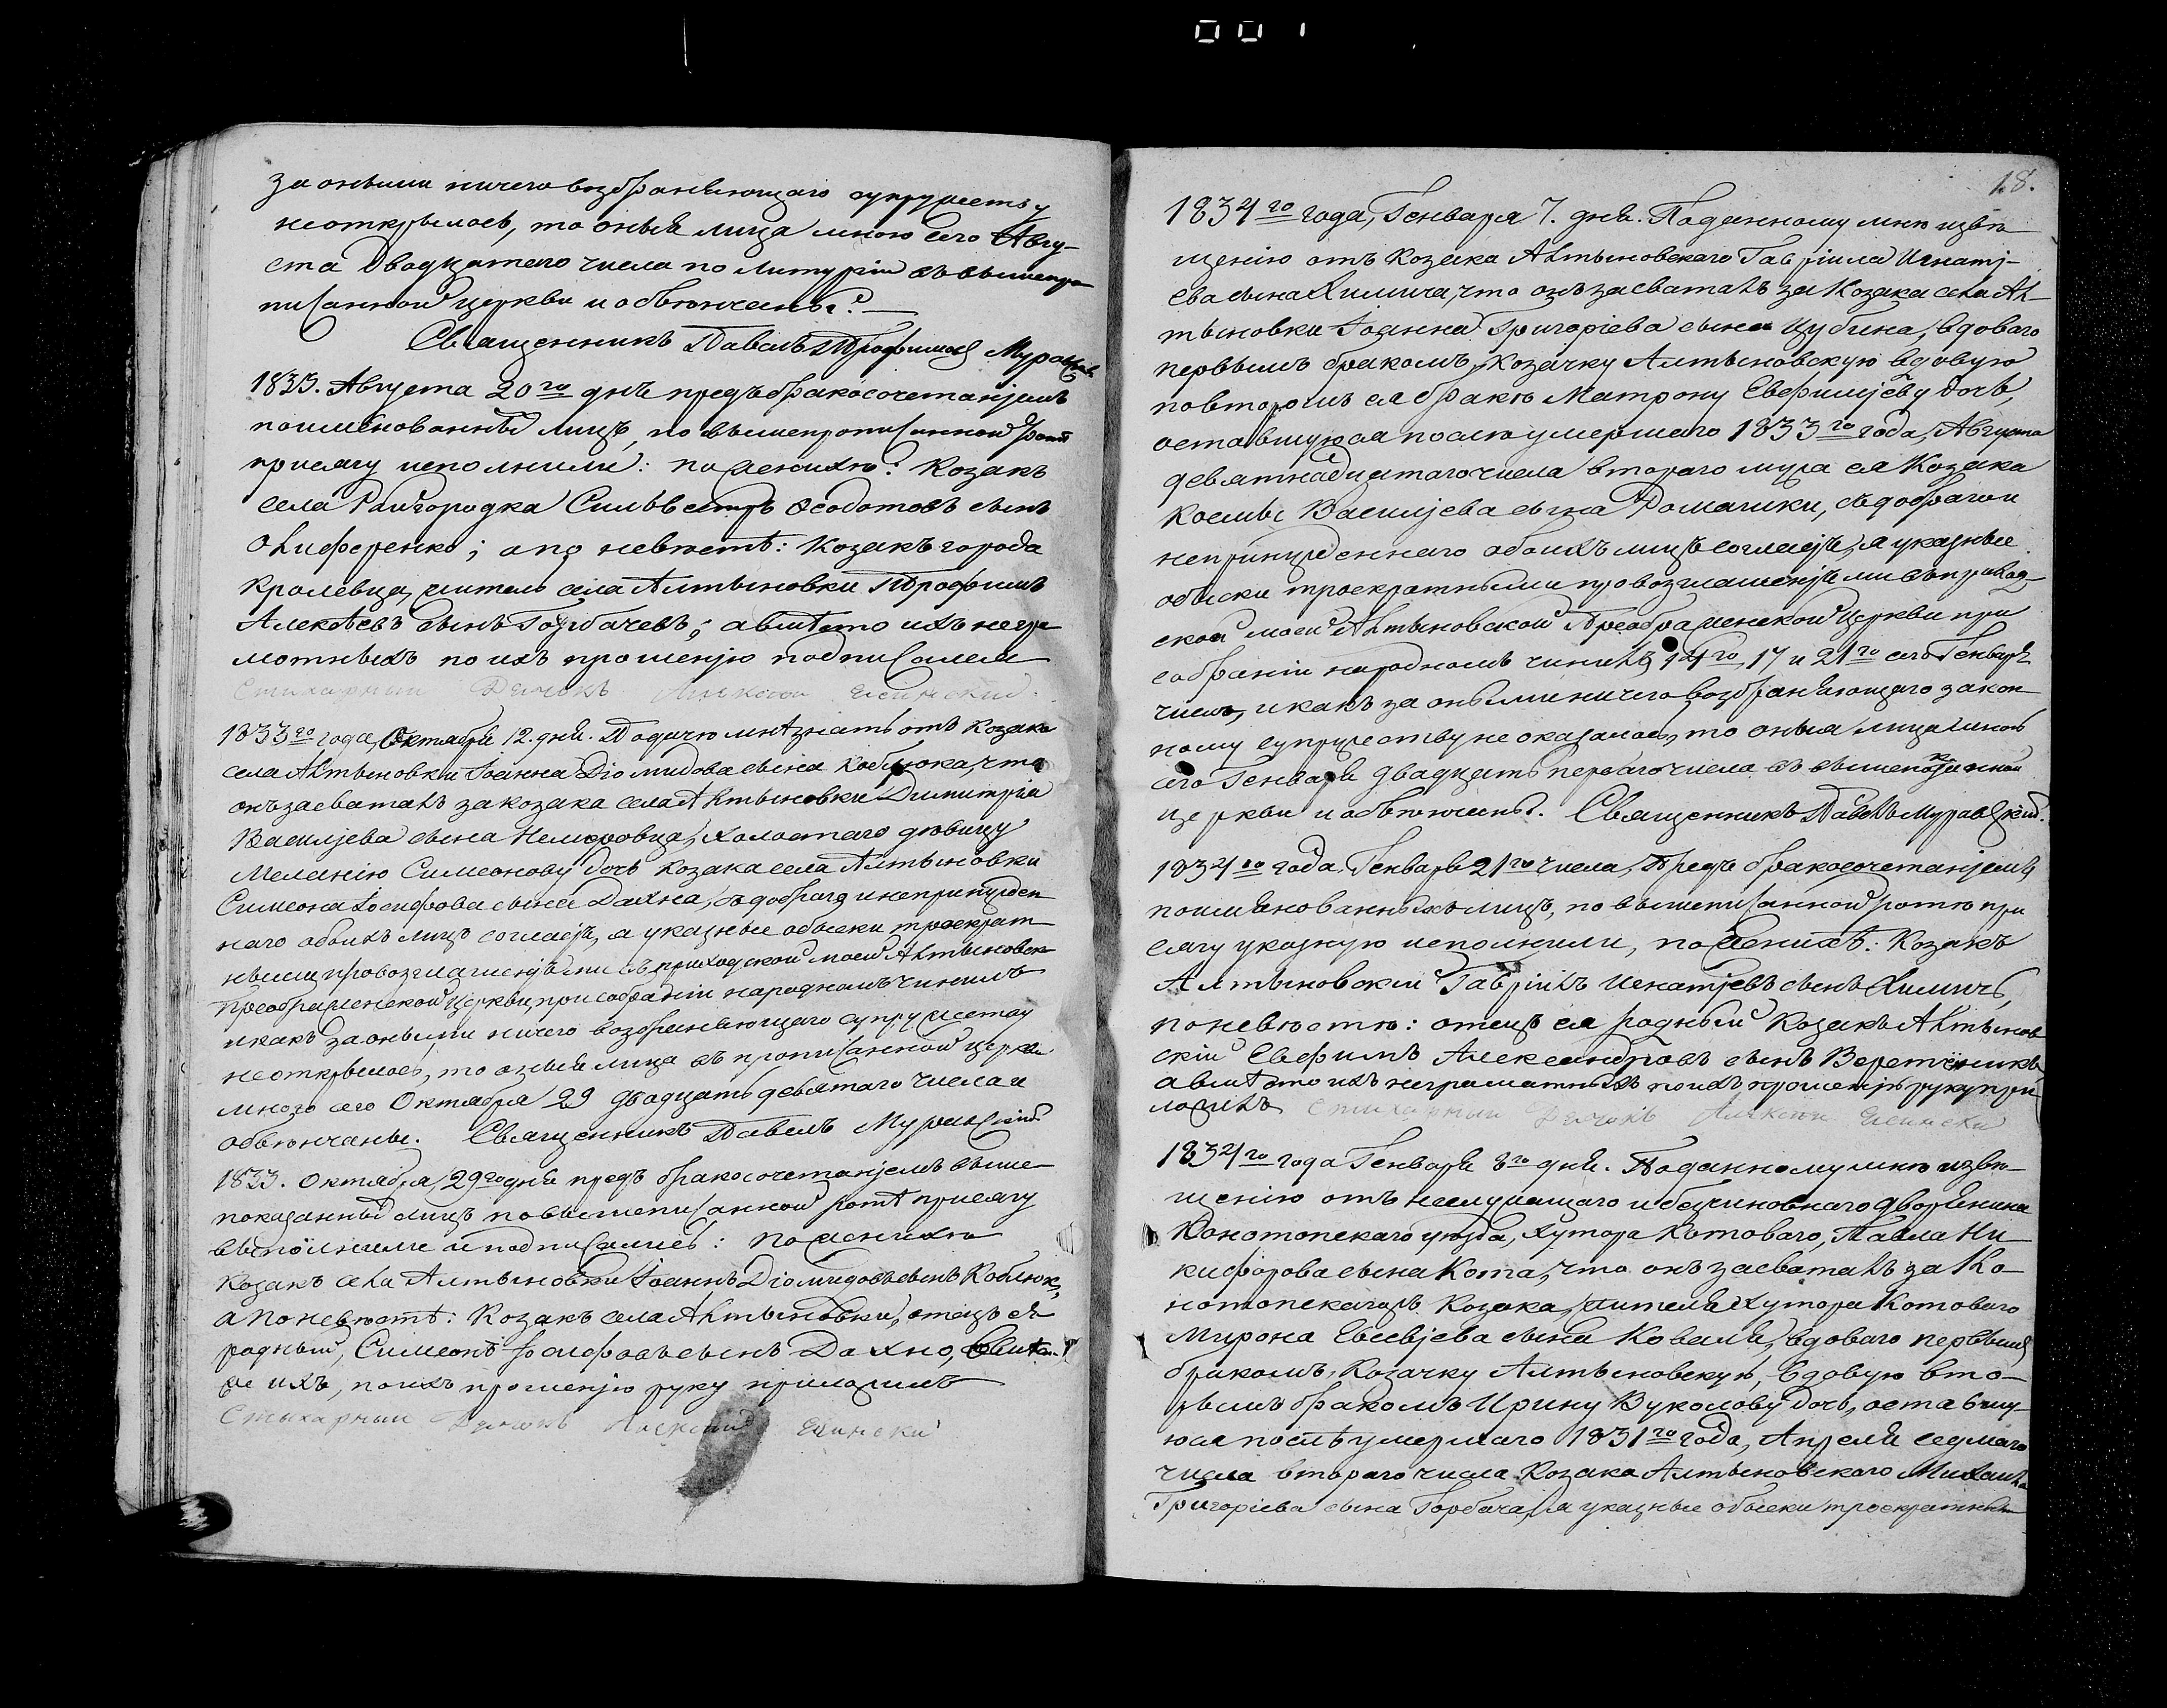 001
за оными ничего возбраняющаго супружеству
неоткрылось, то оныя лица мною сего Авгу-
ста двадцатаго числа по Литургіи въ вышепро
писанной церкви и обвѣнчаны.
Священникъ Павелъ Трофимов Муравскій
1833. Августа 20го дня предъ бракосочетаніемъ
поименованныя лица, по вышепрописанной ротѣ
присягу исполнили: по женихѣ: Козакъ
села Райгородка Сильвестръ Ѳеодотовъ сынъ
Олиференко; а по невѣстѣ: Козакъ города
Кролевца, житель села Алтыновки Трофимъ
Алексѣевъ сынъ Горбачевъ; а вмѣсто ихъ негра
мотныхъ по ихъ прошенію подписалея
Стихарный Дячокъ Алексей
1833го года, Октября 12. дня. Подачею мнѣ знать отъ Козака
села Алтыновки Іоанна Діомидова сына Коблюка, что
онъ засваталъ за козака села Алтыновки Димитрія
Василіева сына Немеровца, холостаго дѣвицу
Меланію Симеонову дочь Козака села Алтыновки
Симеона Іосифова сына Дахна, съ добраго и непринужден
наго обоихъ лицъ согласія, я указные обыски троекрат
ными провозглашеніями въ приходской моей Алтыновск
Преображенской Церкви, при собраніи народномъ чинилъ
и какъ за оными ничего возбраняющаго супружеству
неоткрылось, то оныя лица въ прописанной церкви
мною сего Октября 29 двадцать девятаго числа и
обвѣнчаны. Священникъ Павелъ Муравскій
1833. Октября, 29го дня предъ бракосочетаніемъ выше
показанныя лица по вышеписанной ротѣ присягу
выполнили и подписались: по женихѣ
Козакъ села Алтыновки Іоаннъ Діомидовъ сынъ Коблюкъ,
а по невѣстѣ: Козакъ села Алтыновки, отецъ ея
родный, Симеонъ Іосифовъ сынъ Дахно,
ихъ, по ихъ прошенію руку приложилъ
Стихарный Дячокъ Алексей
18.
1834го года, Генваря 7. дня. По данному мнѣ извѣ
щенію отъ Козака Алтыновскаго Гавріила Игнаті-
ева сына Химича, что онъ засваталъ за Козака села Ал-
тыновки Іоанна Григоріева сына Цубина, вдоваго
первымъ бракомъ, Козачку Алтыновскую вдовую
по второмъ ея бракѣ Матрону Евфиміеву дочь,
оставшуюся послѣ умершаго 1833го года, Августа
девятнадцатаго числа втораго мужа ея Козака
Косьмы Василіева сына Ромашки, съ добраго и
непринужденнаго обоихъ лицъ согласія, я указные
обыски троекратными провозглашеніями въ приход
ской моей Алтыновской Преображенской Церкви при
собраніи народномъ чинилъ 14го, 17 и 21го сего Генваря
чиселъ, и какъ за оными ничего возбраняющаго закон
ному супружеству не оказалось, то оныя лица мною
сего Генваря двадцать перваго числа въ вышепоказанной
церкви и обвѣнчаны. Священникъ Павелъ Муравскій.
1834го года. Генваря 21го числа, Предъ бракосочетаніемъ
поименованныхъ лицъ, по вышеписанной ротѣ при
сягу указную исполнили, по женихѣ: Козакъ
Алтыновскій Гавріилъ Игнатіевъ сынъ Химичъ,
по невѣстѣ: отецъ ея родный Козакъ Алтынов
скій Евфимъ Александровъ сынъ Веретенникъ
а вмѣсто ихъ неграматныхъ по ихъ прошенію руку при
ложилъ Стихарный Дячокъ Алексей
1834го года Генваря 8го дня. По данному мнѣ извѣ-
щенію отъ неслужащаго и безчиновнаго дворянина
Конотопскаго уѣзда, Хутора Котоваго, Павла Ни
кифорова сына Кота, что онъ засваталъ за Ко-
нотопскагожъ Козака, жителя Хутора Котоваго
Мирона Евсевіева сына Коваля, вдоваго первымъ
бракомъ, Козачку Алтыновскую, вдовую вто-
рымъ бракомъ Ирину Вуколову дочь, оставшу-
юся послѣ умершаго 1831го года, Апреля седмаго
числа втораго числа Козака Алтыновскаго Михаила
Григоріева сына Горбача, я указные обыски троекратным